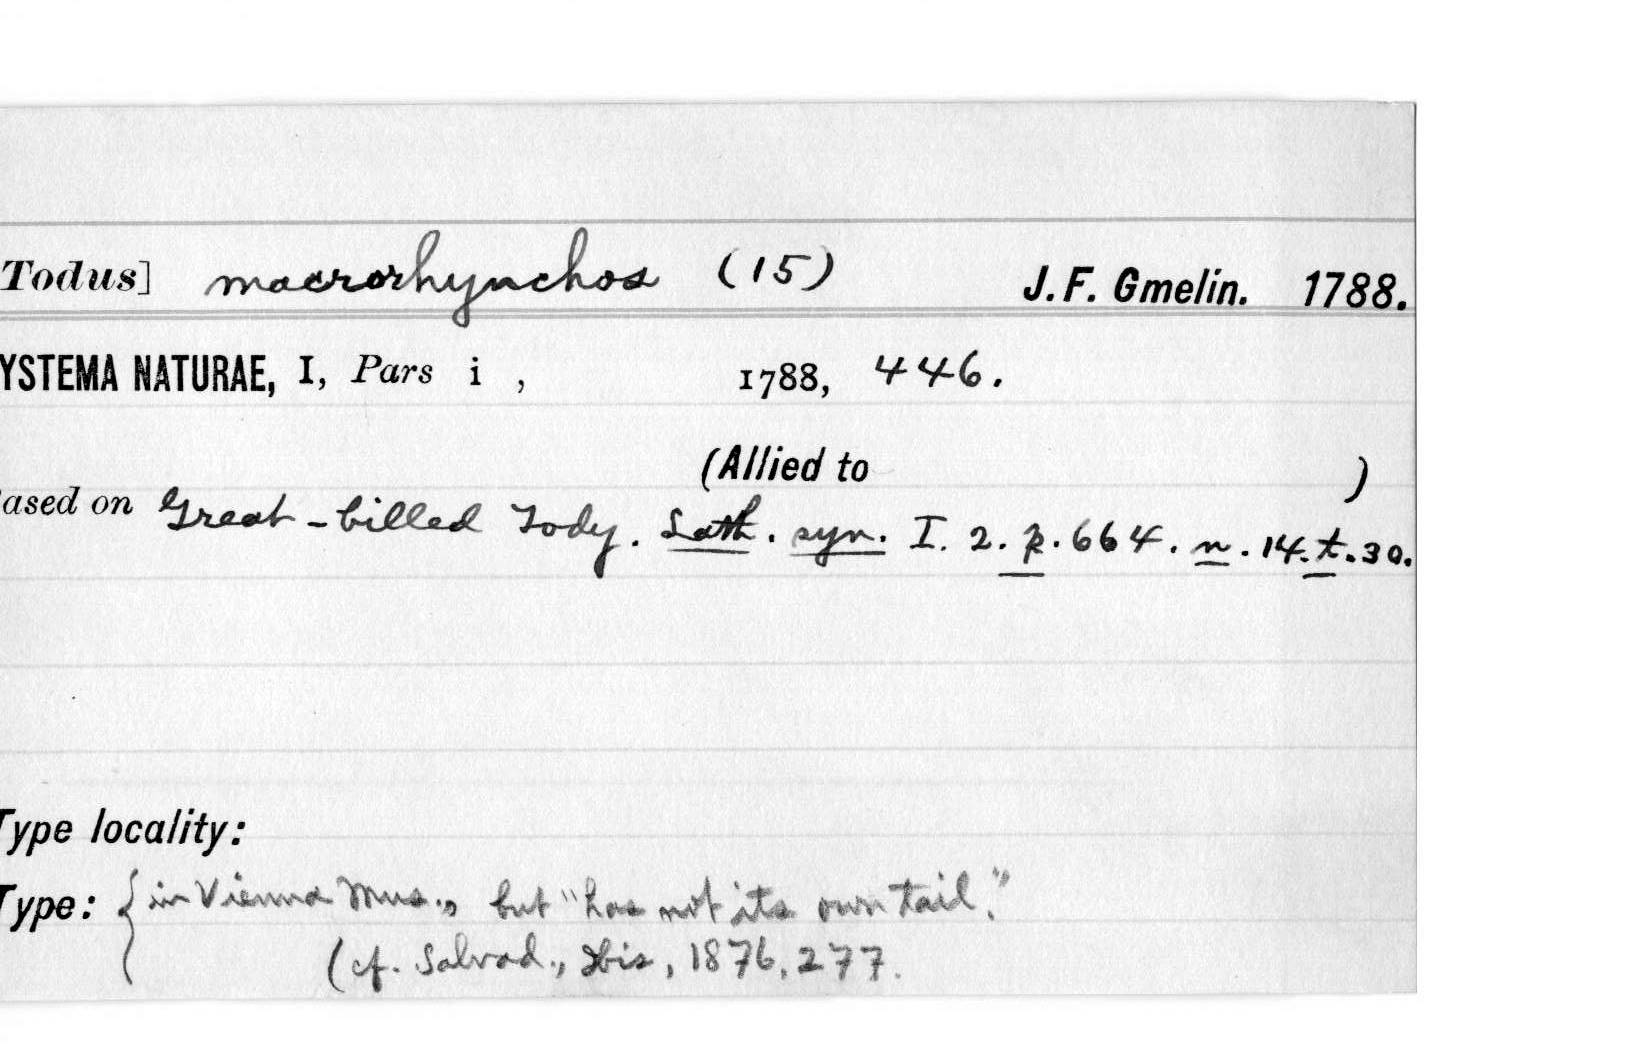 Todus] macrorhynchos (15) J. F. Gmelin. 1788.
YSTEMA NATURAE, I, Pars i , 1788, 446.
(Allied to )
ased on Great-billed Tody. Lath. syn. I. 2. p. 664. n. 14. t. 30.
Type locality:
Type: { in Vienna Mus., but "has not its own tail."
(cf. Salvad., Ibis, 1876, 277.